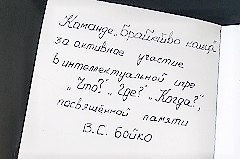 Команде „Брайкиво кащей"
за активное участие
в интеллектуальной игре
„Что?" „Где?" „Когда?",
посвящённой памяти
В.С. Бойко